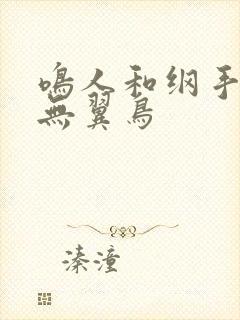 鳴人和纲手
無翼鳥
溱潼